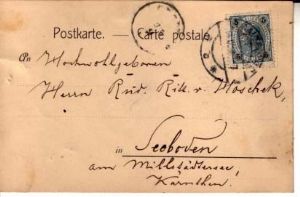 Postkarte. — Carte postale.
An Hochwohlgeboren
Herrn Rud. Ritt. v.
in Seeboden
am Millstädtersee,
Kärnthen.